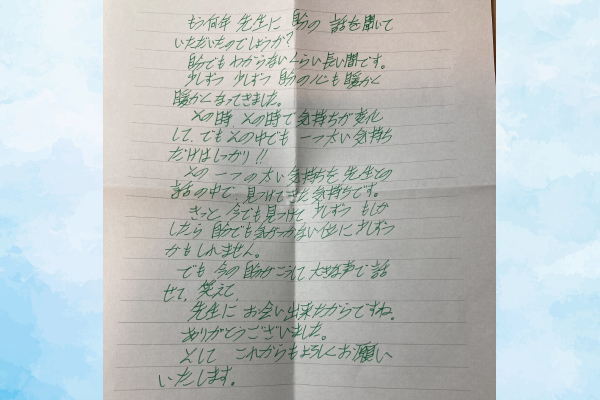 もう何年 先生に 自分の 話を聞いて
いただいたのでしょうか?
自分でもわからないくらい長い間です。
少しずつ 少しずつ 自分の心も暖かく
暖かくなってきました。
その時 その時で気持ちが変化
して、でもその中でも 一つ太い気持ち
だけはしっかり!!
その一つの太い気持ちを先生との
話の中で、見つけてきた気持ちです。
きっと、今でも見つけて 少しずつ もしか
したら 自分でも気がつかない位に少しずつ
かもしれません。
でも今の自分がこうして大きな声で話
せて、笑えて、
先生に お会い出来たからですね。
ありがとうございました。
そして これからもよろしくお願い
いたします。